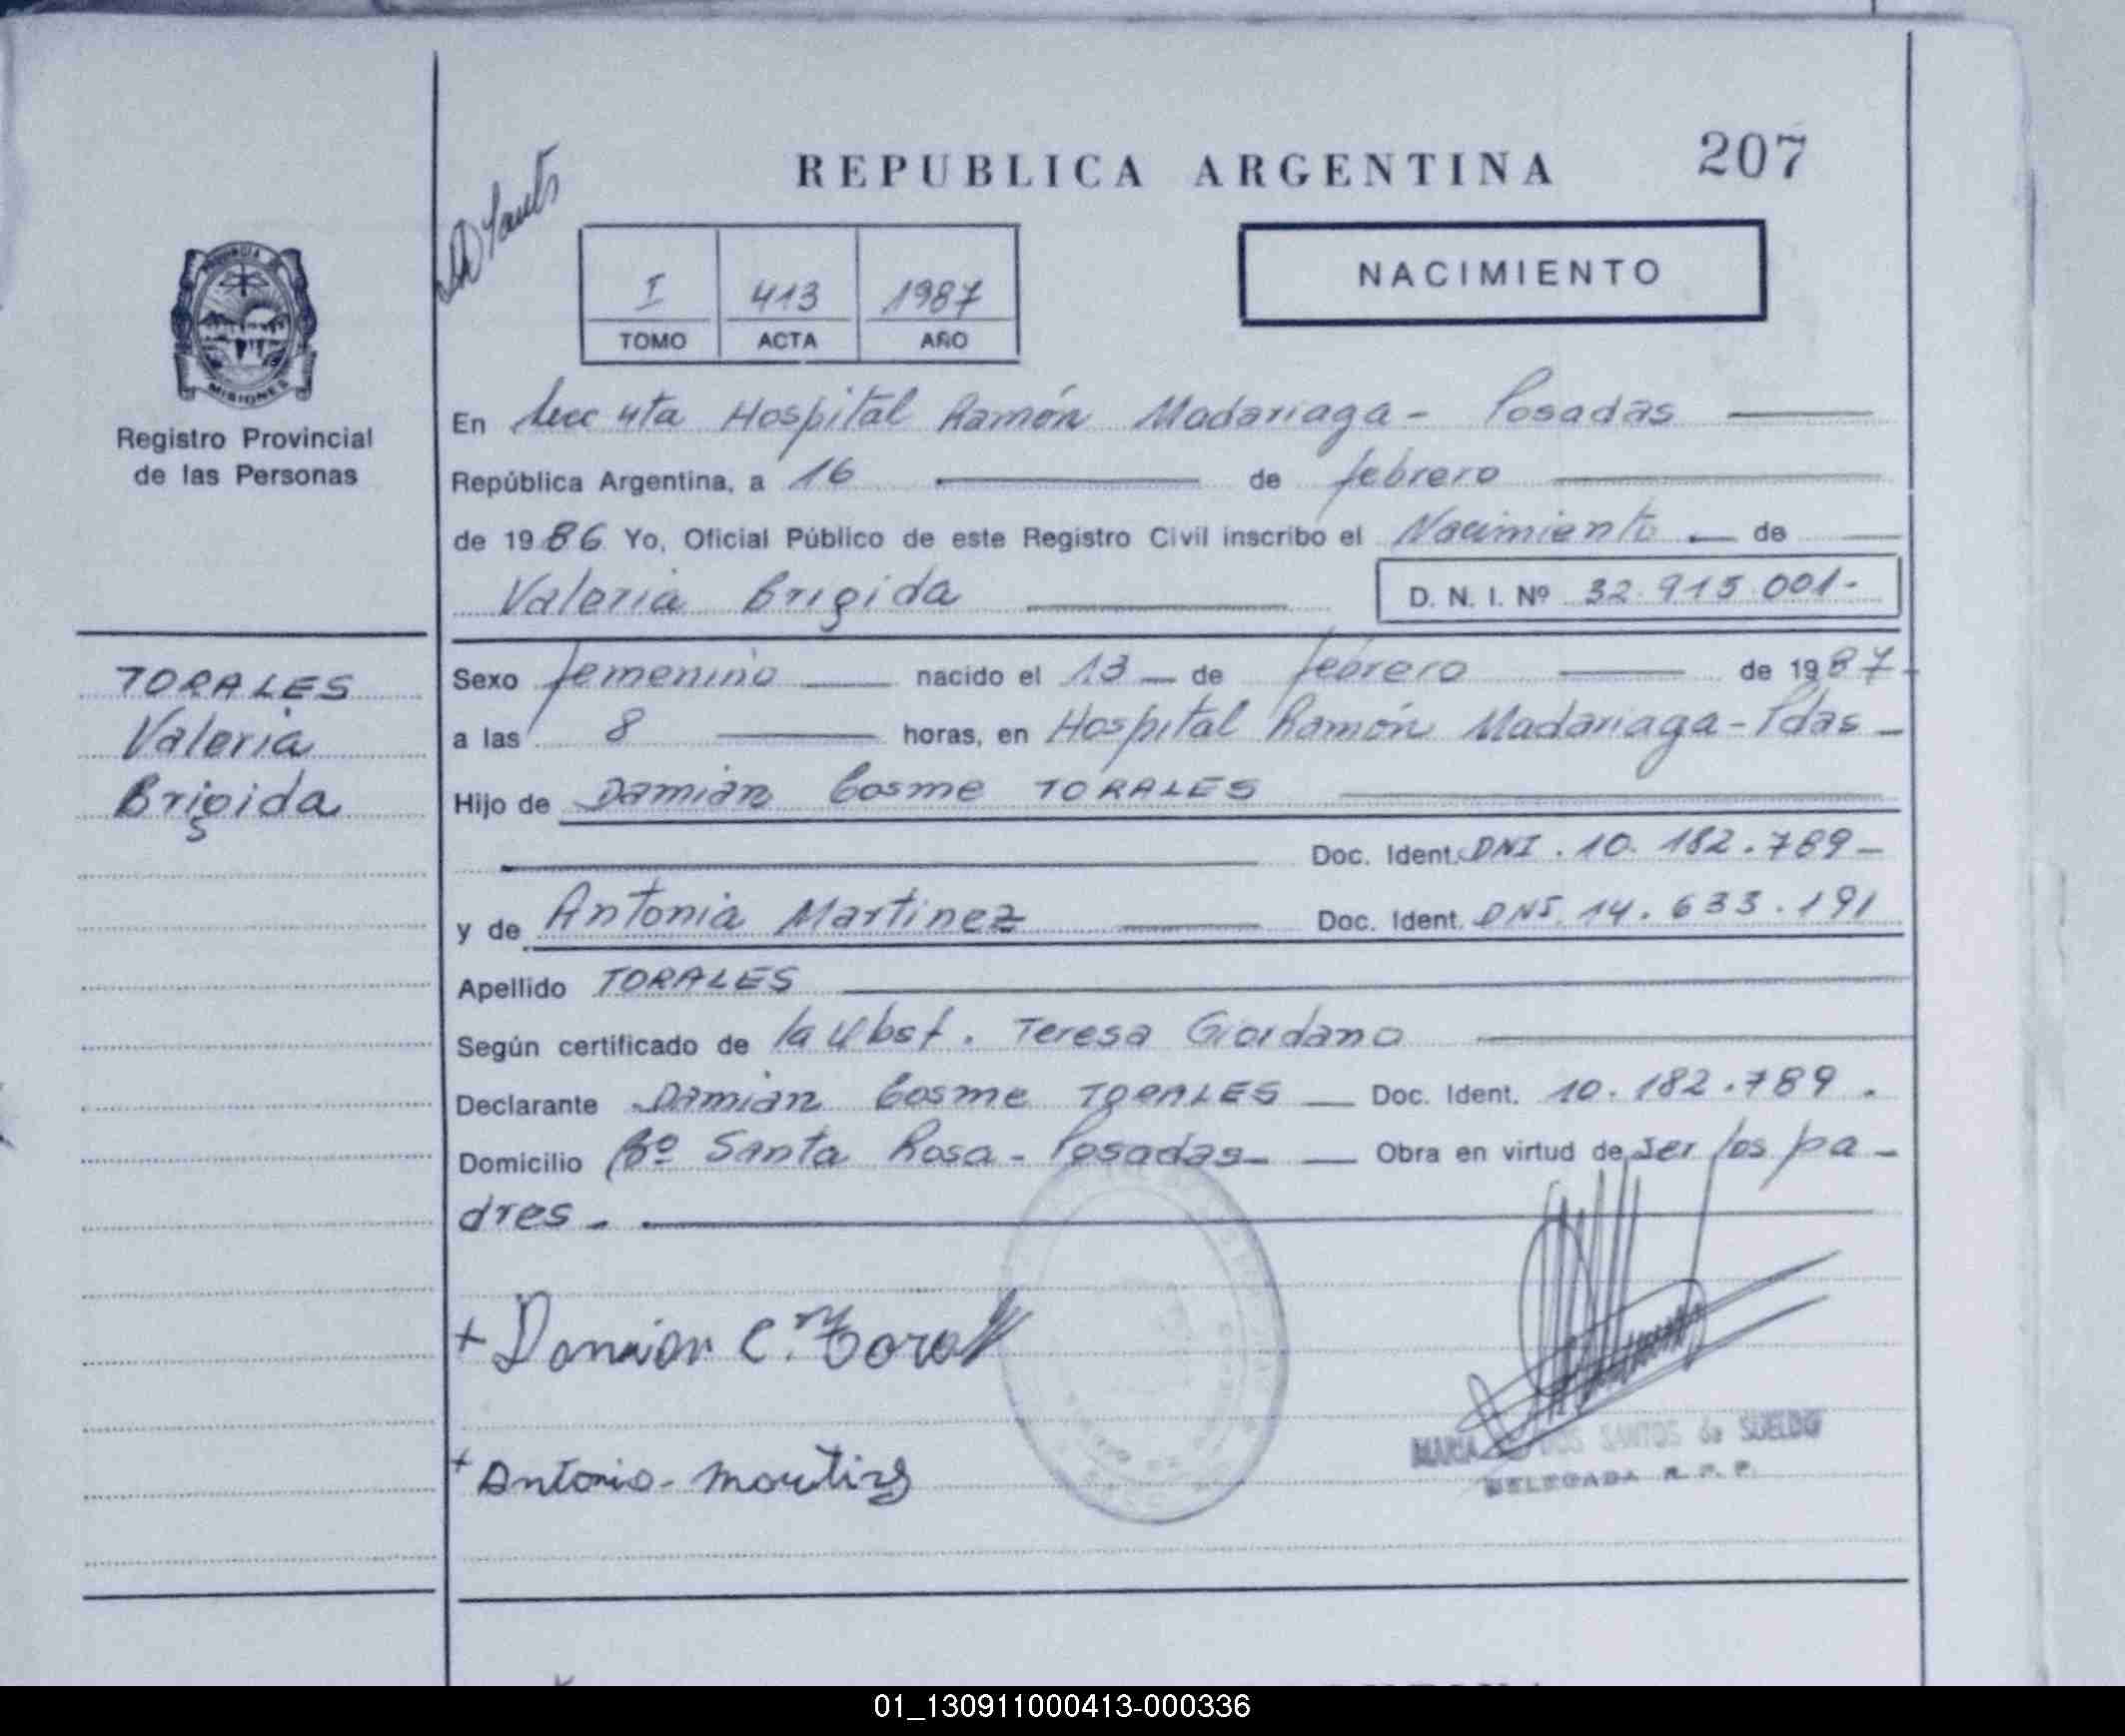 REPUBLICA ARGENTINA
207
PROVINCIA DE
MISIONES
Registro Provincial
de las Personas
I 413 1987
TOMO ACTA AÑO
NACIMIENTO
En Secc 4ta Hospital Ramón Madariaga - Posadas
República Argentina, a 16 de febrero
de 1986 Yo, Oficial Público de este Registro Civil inscribo el Nacimiento de
Valeria Brigida
D. N. I. Nº 32.915.001-
TORALES
Valeria
Brigida
Sexo femenino nacido el 13 de febrero de 1987
a las 8 horas, en Hospital Ramón Madariaga - Pdas
Hijo de Damián Cosme TORALES
Doc. Ident. DNI. 10. 182.789
y de Antonia Martinez Doc. Ident. DNI. 14. 633.191
Apellido TORALES
Según certificado de la Obst. Teresa Giordano
Declarante Damián Cosme TORALES Doc. Ident. 10.182.789.
Domicilio Bº Santa Rosa - Posadas Obra en virtud de ser los pa-
dres.
+ Damian C.
MARIA DOS SANTOS de SUELDO
DELEGADA R. P. P.
+ Antonia
01_130911000413-000336